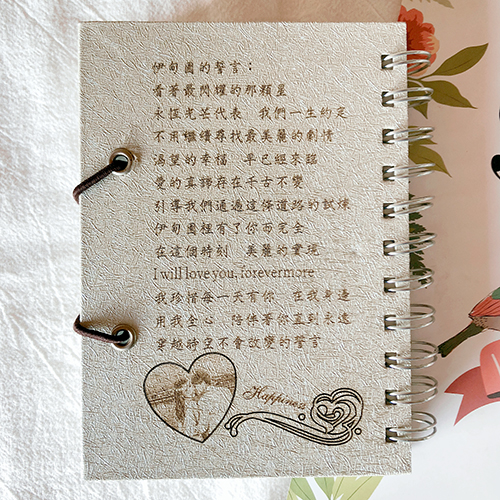 伊甸園的誓言：
看著最閃耀的那顆星
永恆光芒代表 我們一生約定
不用繼續尋找最美麗的劇情
渴望的幸福 早已經來臨
愛的真諦存在千古不變
引導我們通過這條道路的試煉
伊甸園裡有了你而完全
在這個時刻 美麗的實現
I will love you, forevermore
我珍惜每一天有你 在我身邊
用我全心 陪伴著你直到永遠
穿越時空不會改變的誓言
Happiness